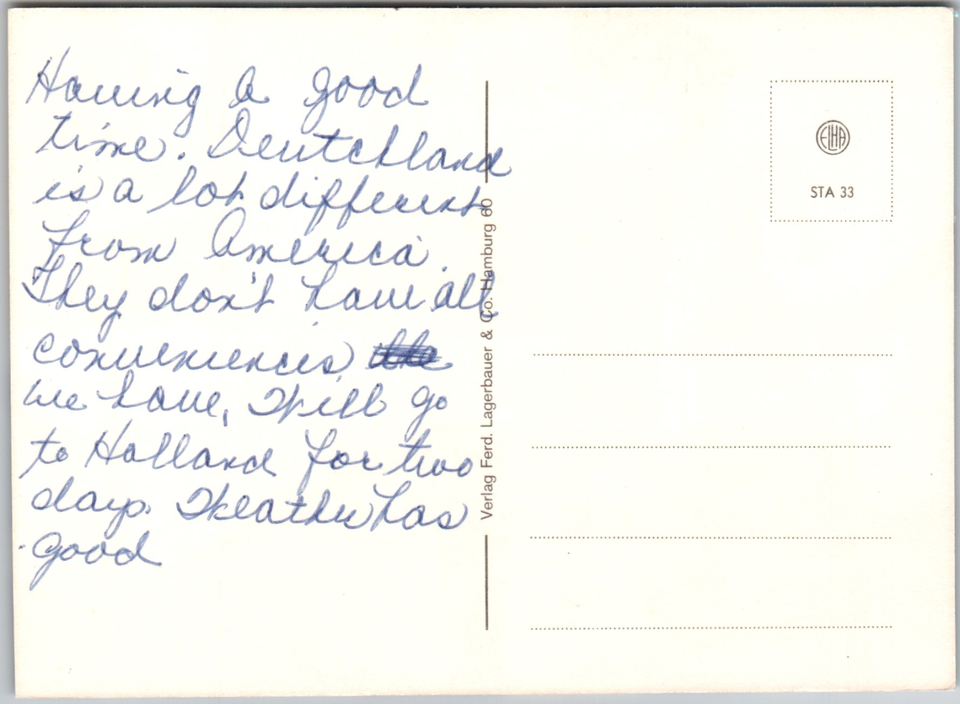 Having a good
time. Deutchland
is a lot different
from America.
They don't have all
conveniences
we have, Will go
to Holland for two
days. Weather has
good
Verlag Ferd. Lagerbauer & Co. Hamburg 60
ELHA
STA 33